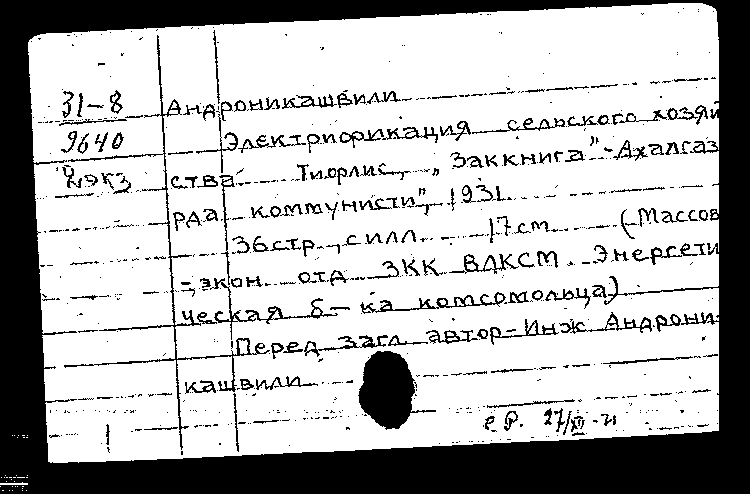 31-8 Андроникашвили
9640 Электрификация сельского хозяй
2экз ства. Тифлис, „Заккнига"-Ахалгаз
рда коммунисти", 1931.
36стр., с илл. 17см (Массов
-экон. отд ЗКК ВЛКСМ. Энергети
ческая б-ка комсомольца)
Перед загл. автор-Инж Андрони-
кашвили
27/XII-71